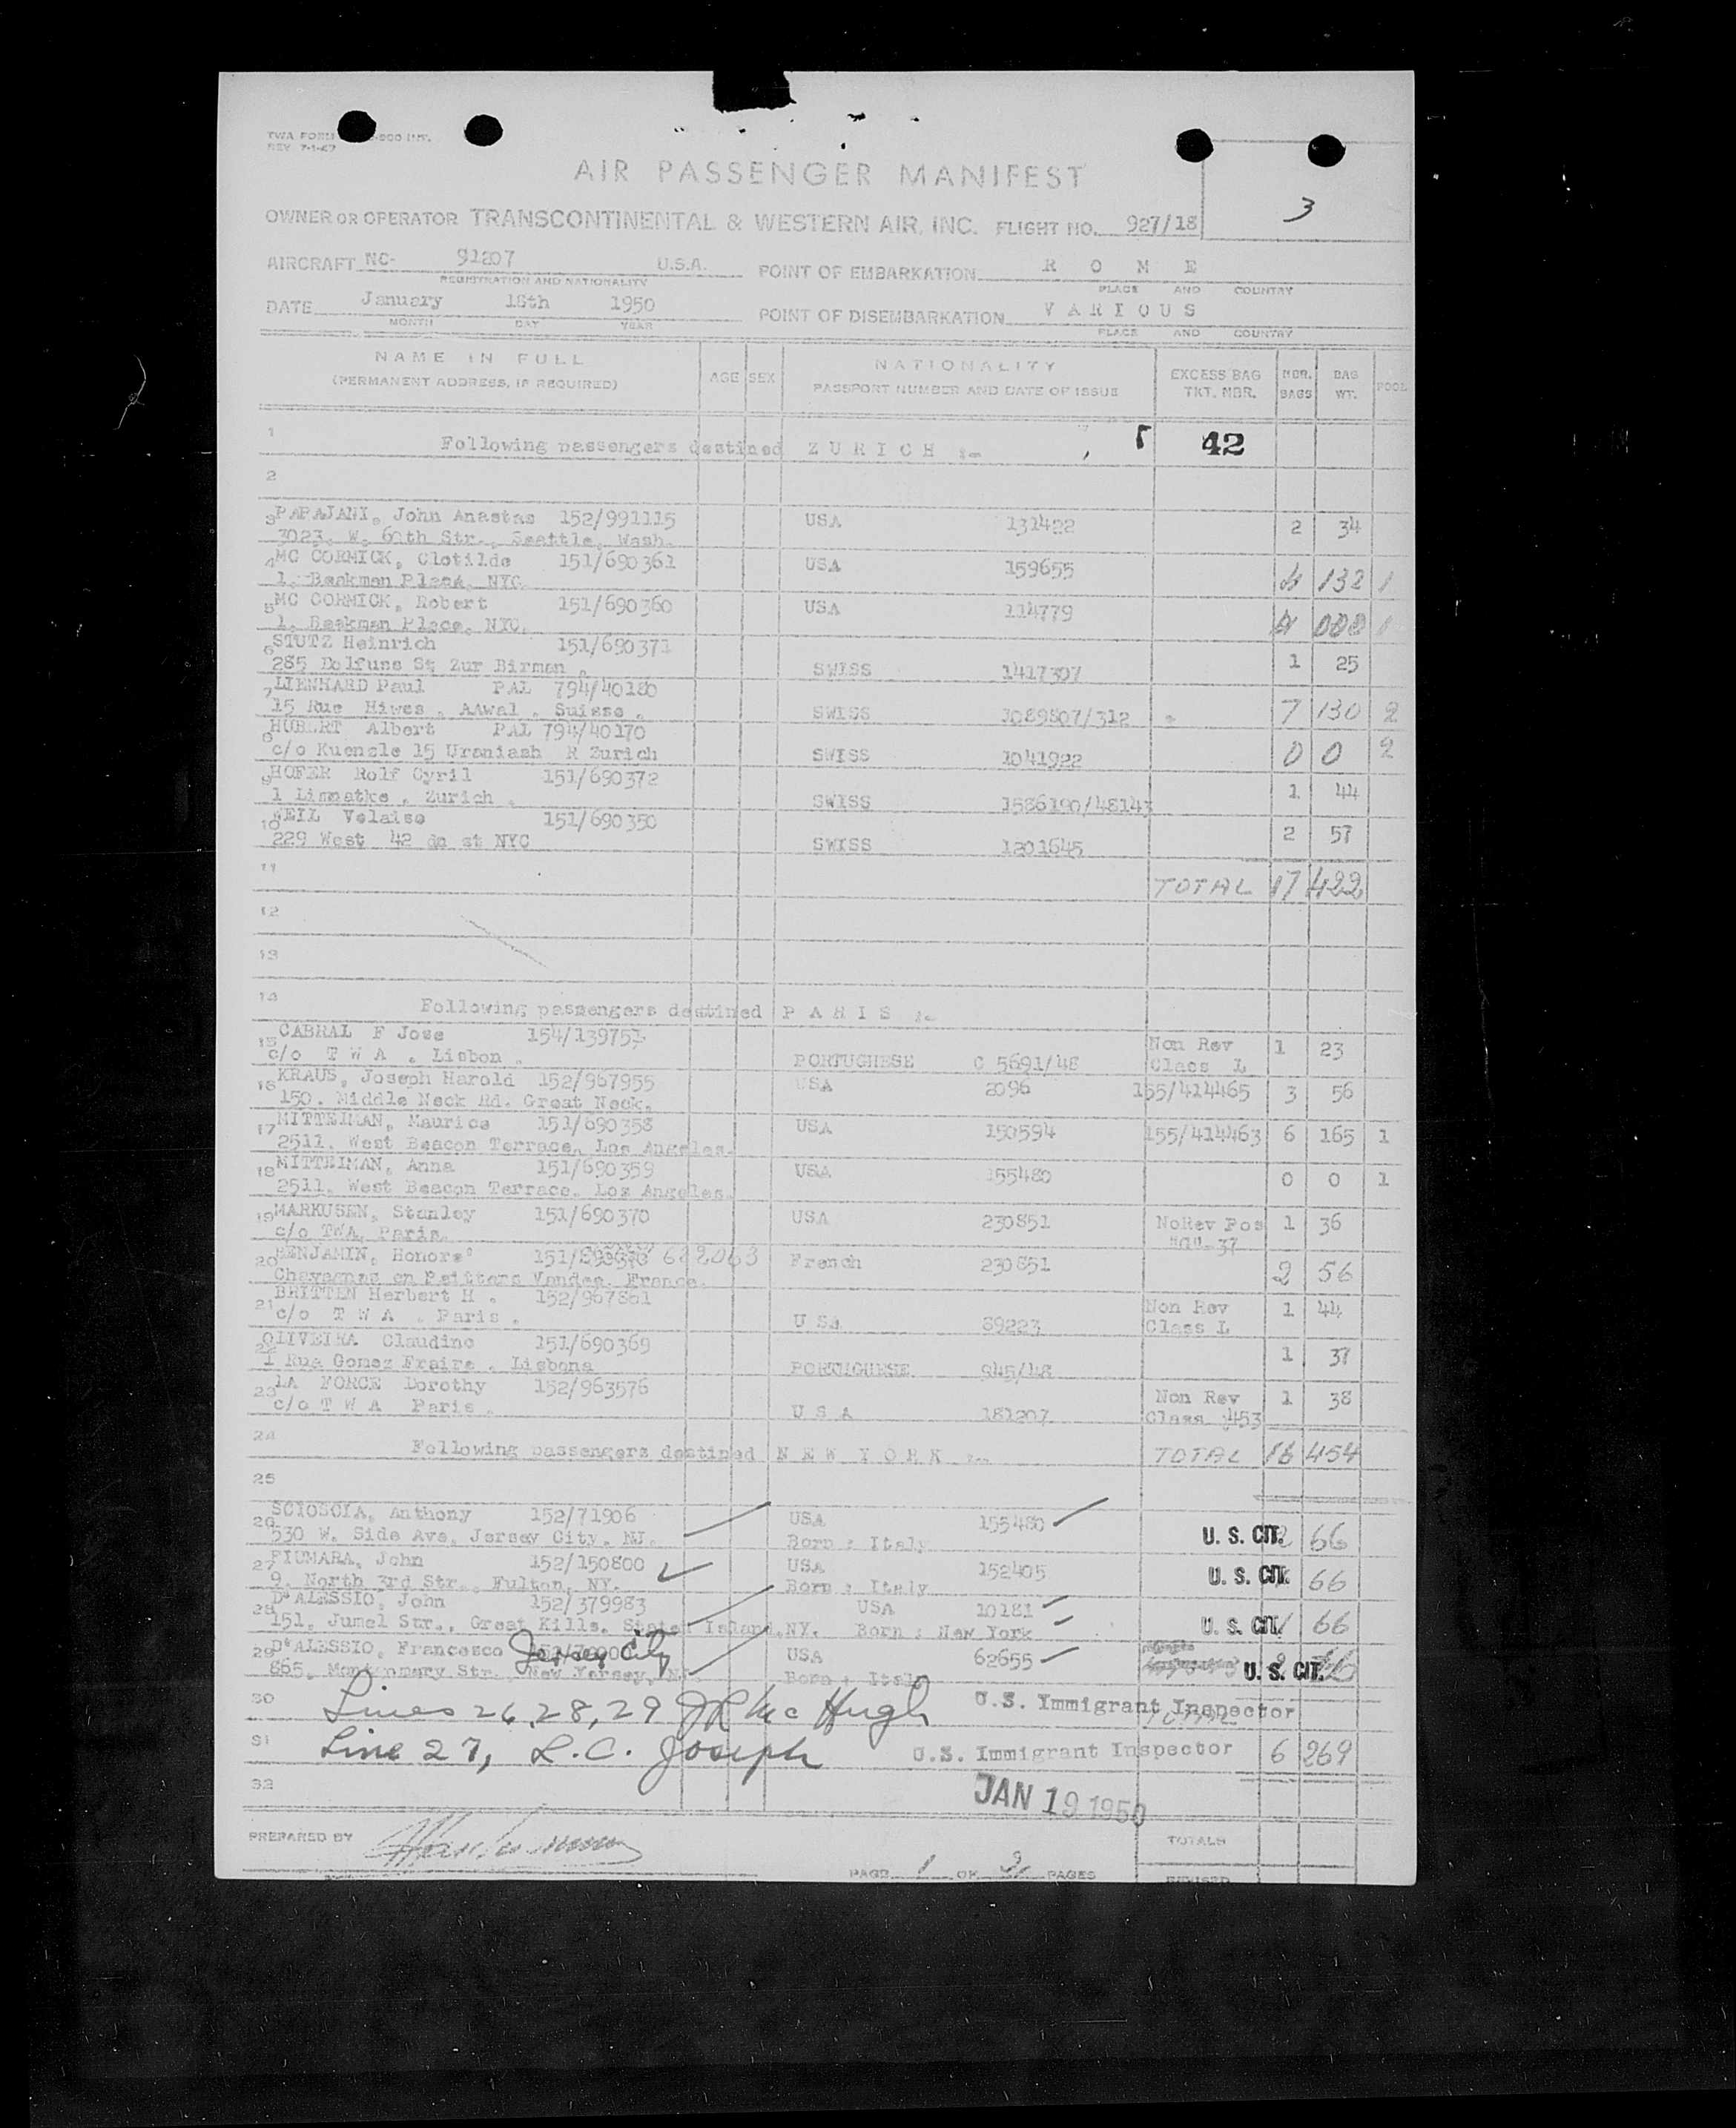 TWA FORM
REV 7-1-47
AIR PASSENGER MANIFEST
3
OWNER OR OPERATOR TRANSCONTINENTAL & WESTERN AIR, INC. FLIGHT NO. 927/18
AIRCRAFT NC- 91207 U.S.A. POINT OF EMBARKATION R O M E
REGISTRATION AND NATIONALITY PLACE AND COUNTRY
DATE January 18th 1950 POINT OF DISEMBARKATION V A R I O U S
MONTH DAY YEAR PLACE AND COUNTRY
NAME IN FULL
(PERMANENT ADDRESS, IF REQUIRED) AGE SEX NATIONALITY
PASSPORT NUMBER AND DATE OF ISSUE EXCESS BAG TKT. NBR. NBR. BAGS BAG WT. POOL
1 Following passengers destined Z U R I C H :- 42
2
3 PAPAJANI, John Anastas 152/991115 USA 131422 2 34
3023, W. 60th Str., Seattle, Wash.
4 MC CORMICK, Clotilde 151/690361 USA 159655
1, Beekman Place, NYC. 4 132 1
5 MC CORMICK, Robert 151/690360 USA 114779
1, Beekman Place, NYC. 000 1
6 STUTZ Heinrich 151/690371
285 Dolfuns St Zur Birmen . SWISS 1417307 1 25
7 LIENHARD Paul PAL 794/40180
15 Rue Hiwes . AAwal . Suisse . SWISS 3089807/312 7 130 2
8 HUBERT Albert PAL 794/40170
c/o Kuenzle 15 Uraniash R Zurich SWISS 1041922 0 0 2
9 HOFER Rolf Cyril 151/690372
1 Limmatke . Zurich . SWISS 1586190/48143 1 44
10 WEIL Velaise 151/690350
229 West 42 dn st NYC SWISS 1201645 2 57
11 TOTAL 17 422
12
13
14 Following passengers destined P A R I S :-
15 CABRAL F Jose 154/139751 Non Rev 1 23
c/o T W A . Lisbon . PORTUGHESE C 5691/48 Class L
16 KRAUS, Joseph Harold 152/967955 USA 2096 155/414465 3 56
150. Middle Neck Rd. Great Neck.
17 MITTEIMAN, Maurice 151/690358 USA 150594 155/414463 6 165 1
2511, West Beacon Terrace, Los Angeles.
18 MITTEIMAN, Anna 151/690359 USA 155480 0 0 1
2511, West Beacon Terrace, Los Angeles.
19 MARKUSEN, Stanley 151/690370 USA 230851 NoRev Pos 1 36
c/o TWA, Paris.
20 BENJAMIN, Honore' 151/ 682063 French 230851 2 56
Vandee, France.
21 BRITTEN Herbert H . 152/967861 Non Rev 1 44
c/o T W A . Paris . U SA 89223 Class L
22 OLIVEIRA Claudino 151/690369
1 Rua Gomez Fraire . Lisbona PORTUGHESE 945/48 1 37
23 LA FORCE Dorothy 152/963576 Non Rev 1 38
c/o T W A Paris . U S A 181207 Class J453
24 Following passengers destined N E W Y O R K :- TOTAL 16 454
25
26 SCIOSCIA, Anthony 152/71906 USA 155480
530 W. Side Ave, Jersey City, NJ. Born : Italy U. S. CIT. 2 66
27 FIUMARA, John 152/150800 USA 152405
9, North 3rd Str., Fulton, NY. Born : Italy U. S. CIT. 66
28 D'ALESSIO, John 152/379983 USA 10181
151, Jumel Str., Great Kills, Staten Island, NY. Born : New York U. S. CIT. 1 66
29 D'ALESSIO, Francesco Jersey City USA 62655
865, Montgomery Str. New Yersey, NJ Born : Italy U. S. CIT.
30 Lines 26, 28, 29 JR McHugh U.S. Immigrant Inspector
31 Line 27, L.C. Joseph U.S. Immigrant Inspector 6 269
32 JAN 19 1950
PREPARED BY TOTALS
PAGE 1 OF 2 PAGES